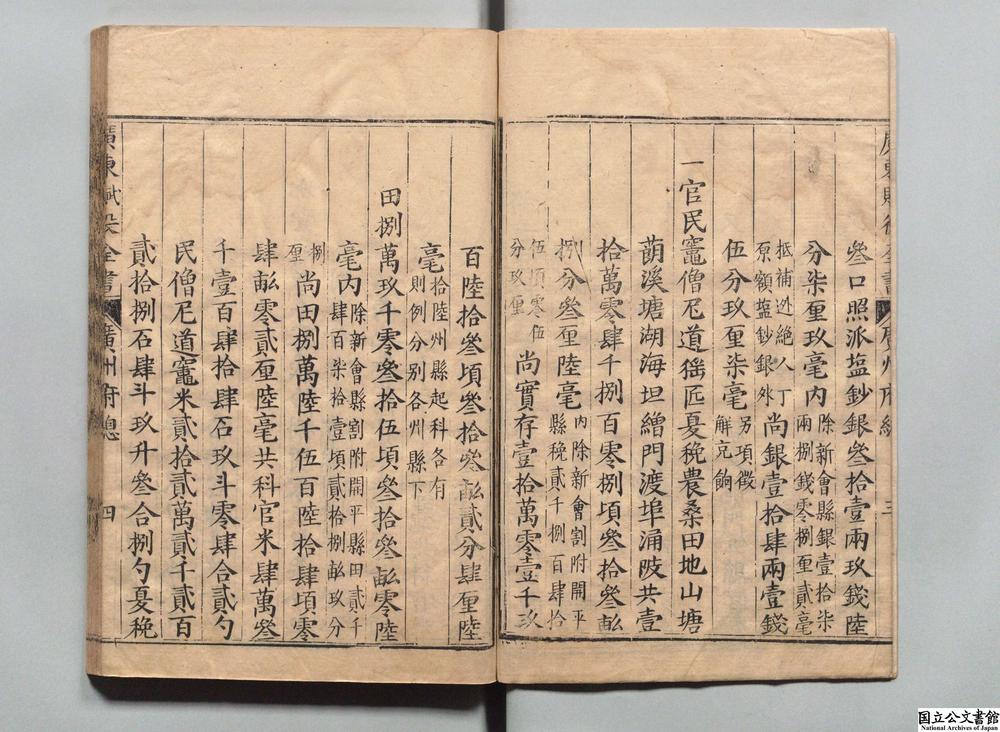 叄口照派塩鈔銀叄拾壹兩玖錢陸
分柒厘玖毫內除新會縣銀壹拾柒
兩捌錢零捌厘貳毫
抵補迯絕人丁
原額塩鈔銀外尚銀壹拾肆兩壹錢
伍分玖厘柒毫另項徵
解充餉
一官民竈僧尼道徭匹憂稅農桑田地山塘
萠溪塘湖海坦繒門渡埠涌陂共壹
拾萬零肆千捌百零捌頃叄拾叄畝
捌分叄厘陸毫內除新會割附開平
縣稅貳千捌百肆拾
伍頃零伍
分玖厘尚實存壹拾萬零壹千玖
廣東賦役全書
廣州府總
四
百陸拾叄頃叄拾叄畝貳分肆厘陸
毫拾陸州縣起科各有
則例分别各州縣下
田捌萬玖千零叄拾伍頃叄拾叄畝零陸
毫內除新會縣割附開平縣田貳千
肆百柒拾壹頃貳拾捌畝玖分
捌
厘尚田捌萬陸千伍百陸拾肆頃零
肆畝零貳厘陸毫共科官米肆萬叄
千壹百肆拾肆石玖斗零肆合貳勺
民僧尼道竈米貳拾貳萬貳千貳百
貳拾捌石肆斗玖升叄合捌勺憂稅
国立公文書館
National Archives of Japan